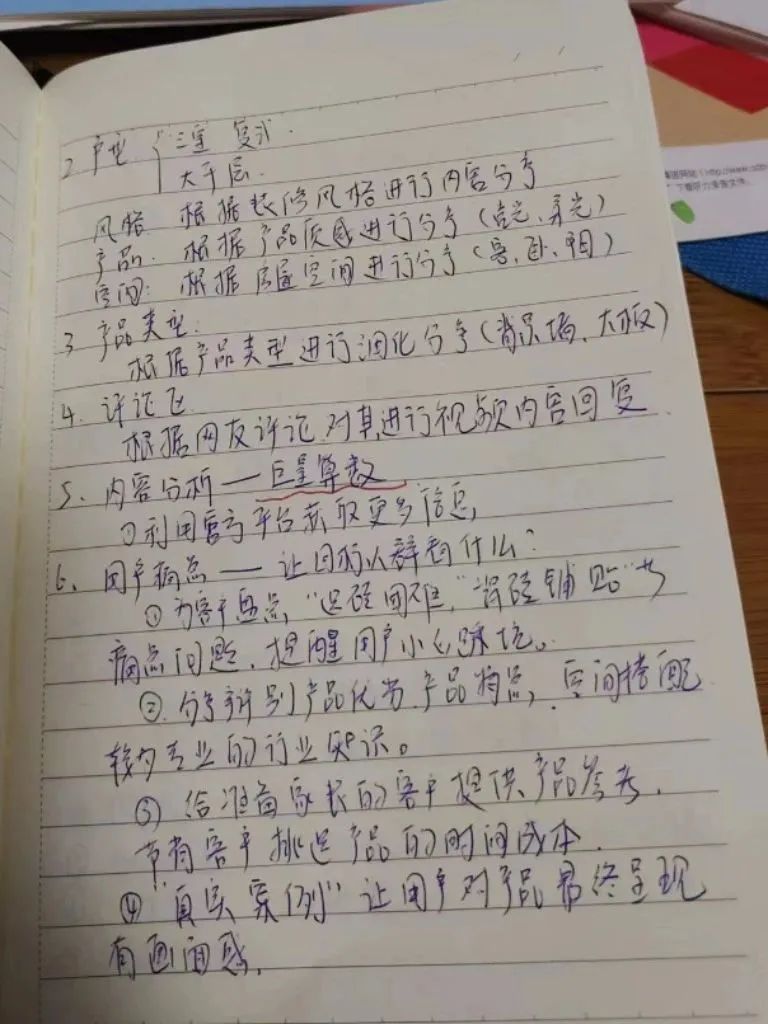 2 户型 { 三室 复式.
大平层.
风格 根据装修风格进行内容分享
产品: 根据产品质感进行分享(亮光、柔光)
空间: 根据居室空间进行分享(客、卧、阳)
3 产品类型:
根据产品类型进行细化分享(背景墙、大板)
4. 评论区
根据网友评论对其进行视频内容回复
5、内容分析 — 巨量算数
①利用官方平台获取更多信息,
6、用户痛点 — 让目标人群看什么?
①为客户盘点,“选砖困难,”“瓷砖铺贴”等
痛点问题,提醒用户小心踩坑。
②分享辨别产品优劣,产品特点,空间搭配
较为专业的行业知识。
③ 给准备家装的客户提供产品参考,
节省客户挑选产品的时间成本.
④“真实案例”让用户对产品最终呈现
有画面感,
http://www.
下载听力录音文件。